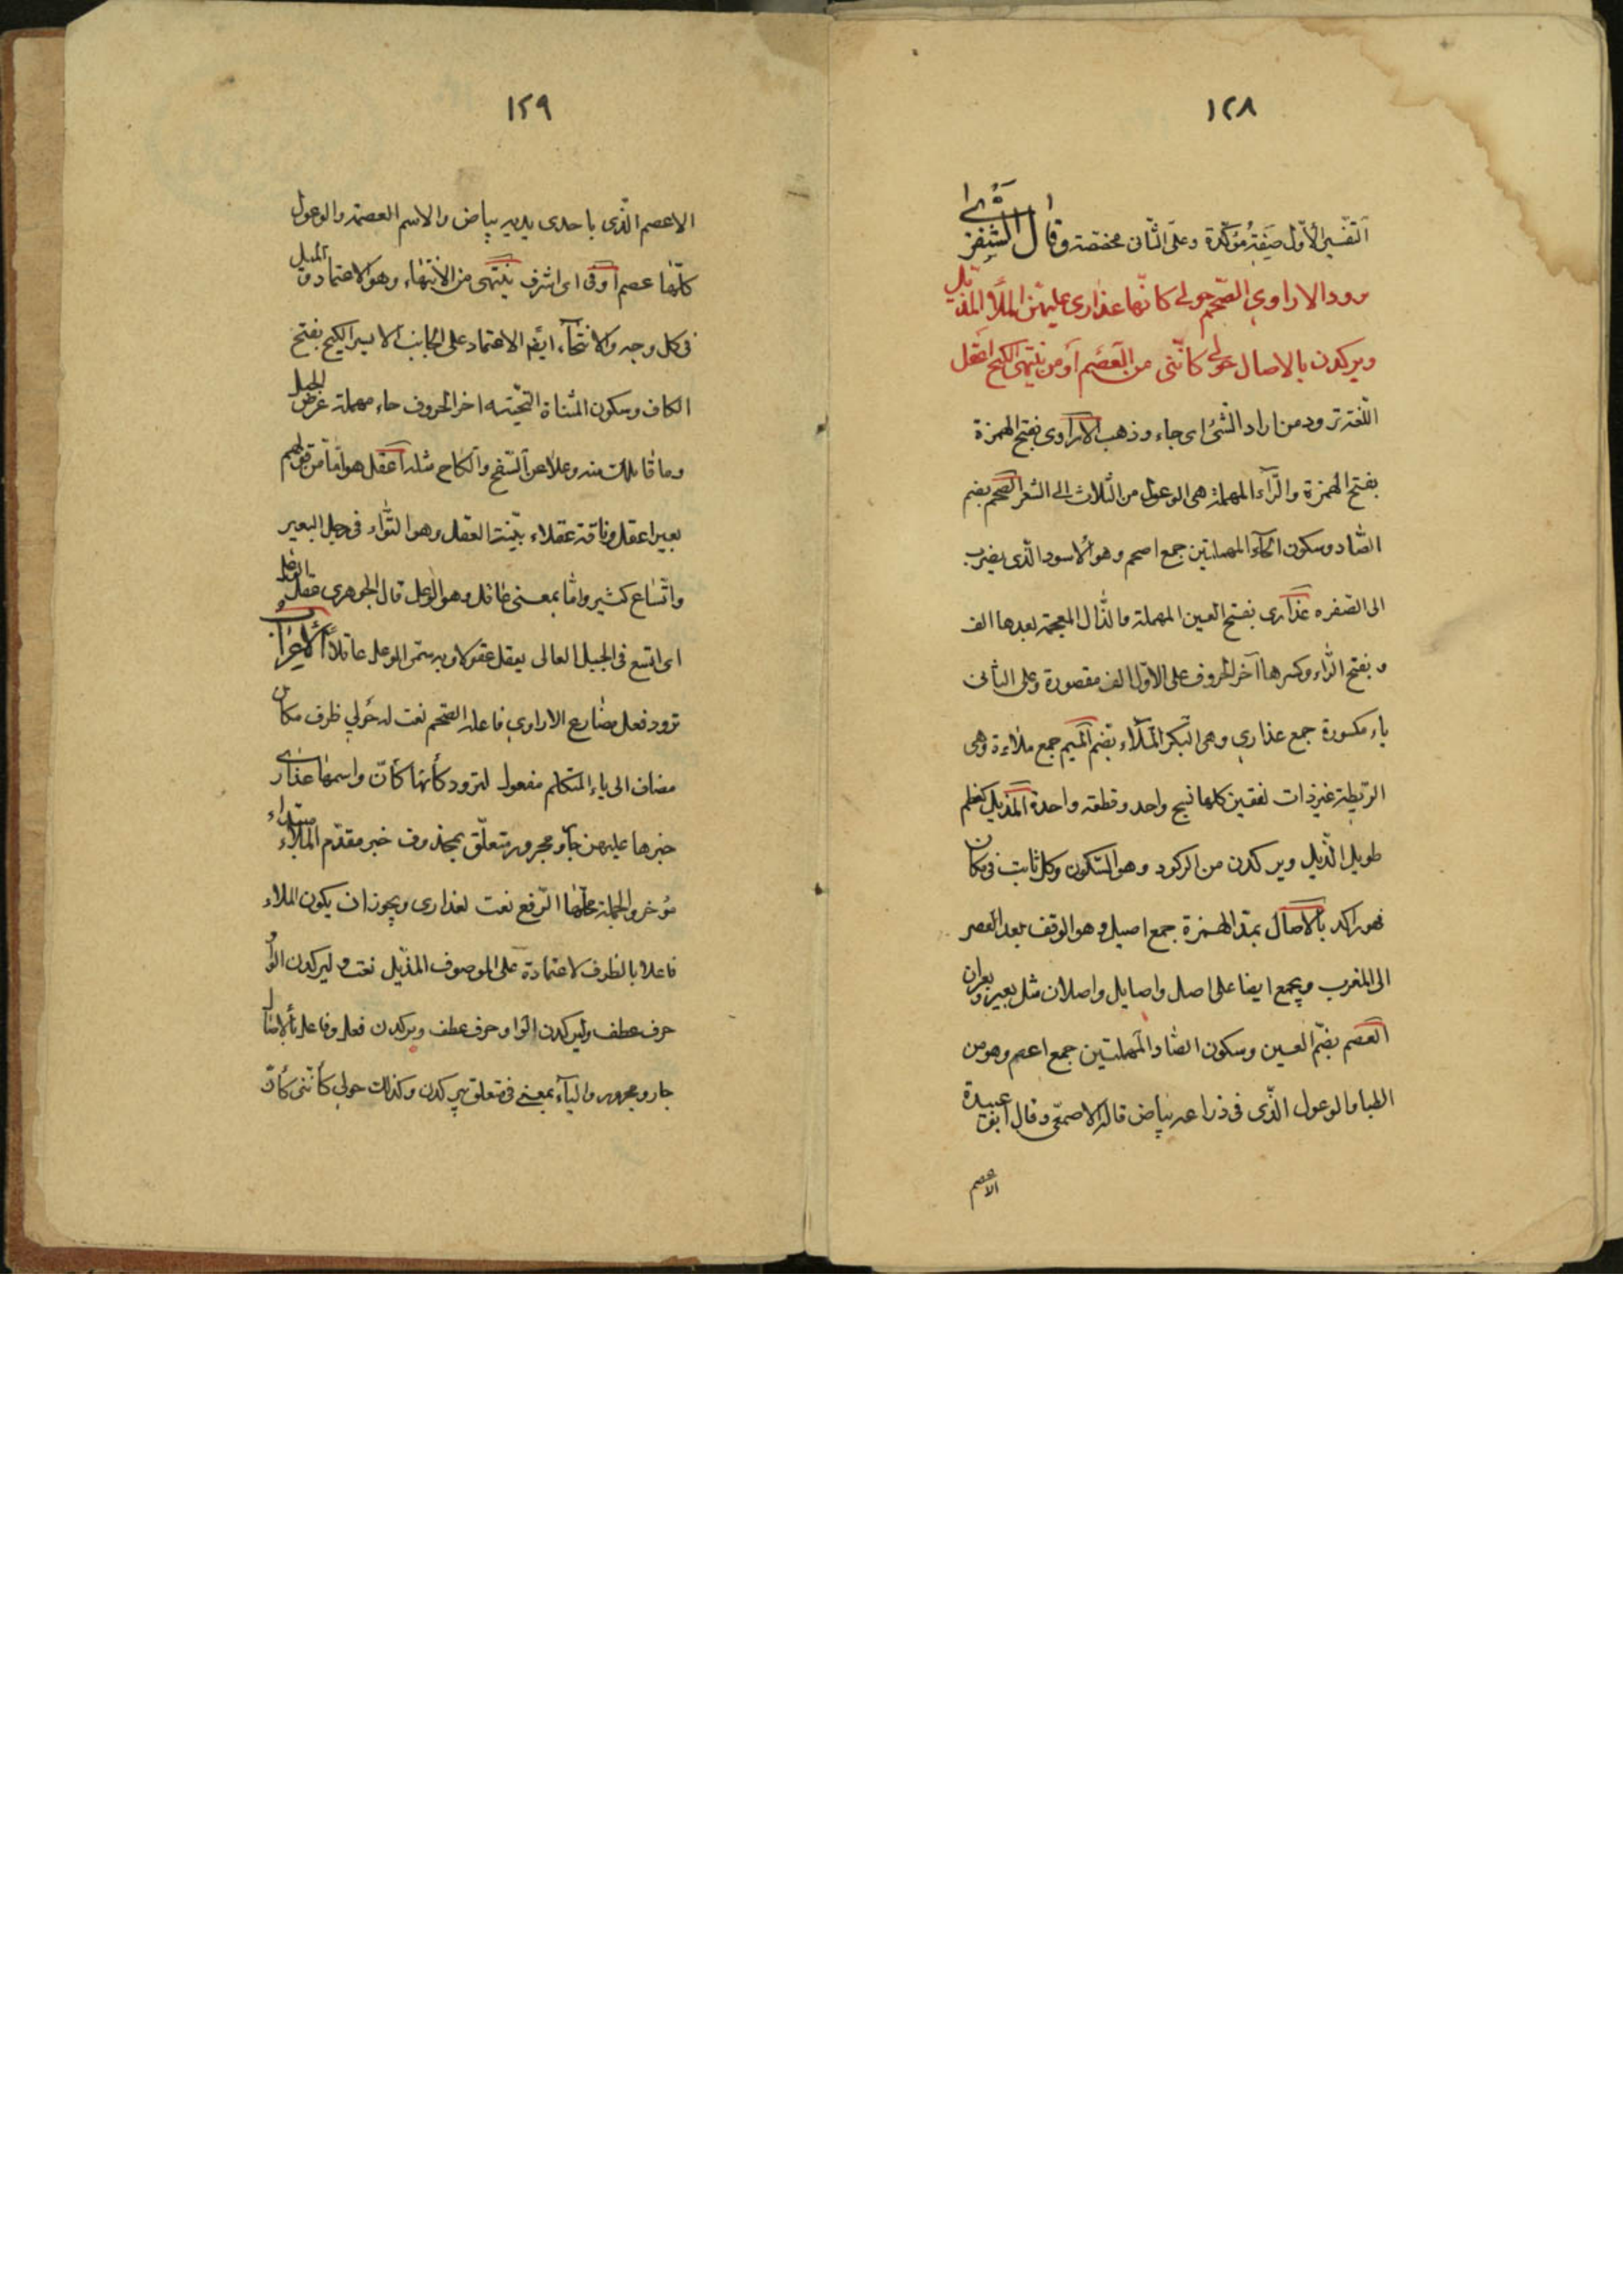 ١٢٨
التفسير الاول صفة مؤكدة وعلى الثانى مخصصة وقال الشنفرى
رود الاراوى الصحم حولى كانها عذارى عليهن الملاء المذيل
ويركدن بالاصال حولى كانّنى من العصم او من ينتحى الكيح اعقل
اللغة ترود من راد الشئ اى جاء وذهب الاراوى بفتح الهمزة
بفتح الهمزة والرّاء المهملة هى الوعول من الثلاث الى العشر الصحم بضم
الصاد وسكون الحاء المهملتين جمع اصحم وهو الاسود الذى يضرب
الى الصفره عذارى بفتح العين المهملة والذال المعجمة بعدها الف
و بفتح الراء وكسرها آخر الحروف على الاول الف مقصورة وعلى الثانى
ياء مكسورة جمع عذارى وهى البكر الملاء بضم الميم جمع ملاءة وهى
الريطة غير ذات لفقين كلها نسج واحد وقطعة واحدة المذيل كمعلم
طويل الذيل ويركدن من الركود وهو السكون وكل ثابت فى مكان
فهو راكد بالاصال بمد الهمزة جمع اصيل وهو الوقف بعد العصر
الى المغرب ويجمع ايضا على اصل واصايل واصلان مثل بعير وبعران
العصم بضم العين وسكون الصاد المهملتين جمع اعصم وهو من
الظبا والوعول الذى فى ذراعه بياض قاله الاصمعى وقال ابو عبيدة
الاعصم
١٢٩
الاعصم الذى باحدى يديه بياض والاسم العصمة والوعول
كلها عصم اوفى اى اشرف ينتحى من الانتهاء وهو الاعتماد والميل
فى كل وجه والانتحاء ايضا الاعتماد على الجانب الايسر الكيح بفتح
الكاف وسكون المثناة التحتيه اخر الحروف حاء مهملة عرض الجبل
وما قابلك منه وعلا عن السفح والكاح مثله اعقل هو اما من قولهم
بعير اعقل وناقة عقلاء بيّنة العقل وهو التواء فى رجل البعير
واتساع كثير واما بمعنى عاقل وهو الوعل قال الجوهرى عقل الوعل
اى امتنع فى الجبل العالى يعقل عقولا وبه سمى الوعل عاقلا الاعراب
ترود فعل مضارع الاراوى فاعله الصحم نعت له حولى ظرف مكان
مضاف الى ياء المتكلم مفعول لترود كأنها كأنّ واسمها عذارى
خبرها عليهن جار ومجرور متعلق بمحذوف خبر مقدم الملاء مبتداء
مؤخر والجملة محلها الرفع نعت لعذارى ويجوز ان يكون الملاء
فاعلا بالظرف لاعتمادة على الموصوف المذيل نعت ويركدن الواو
حرف عطف ويركدن الواو حرف عطف ويركدن فعل وفاعله بالاصال
جار ومجرور والباء بمعنى فى متعلق بيركدن وكذلك حولى كأننى كأنّ